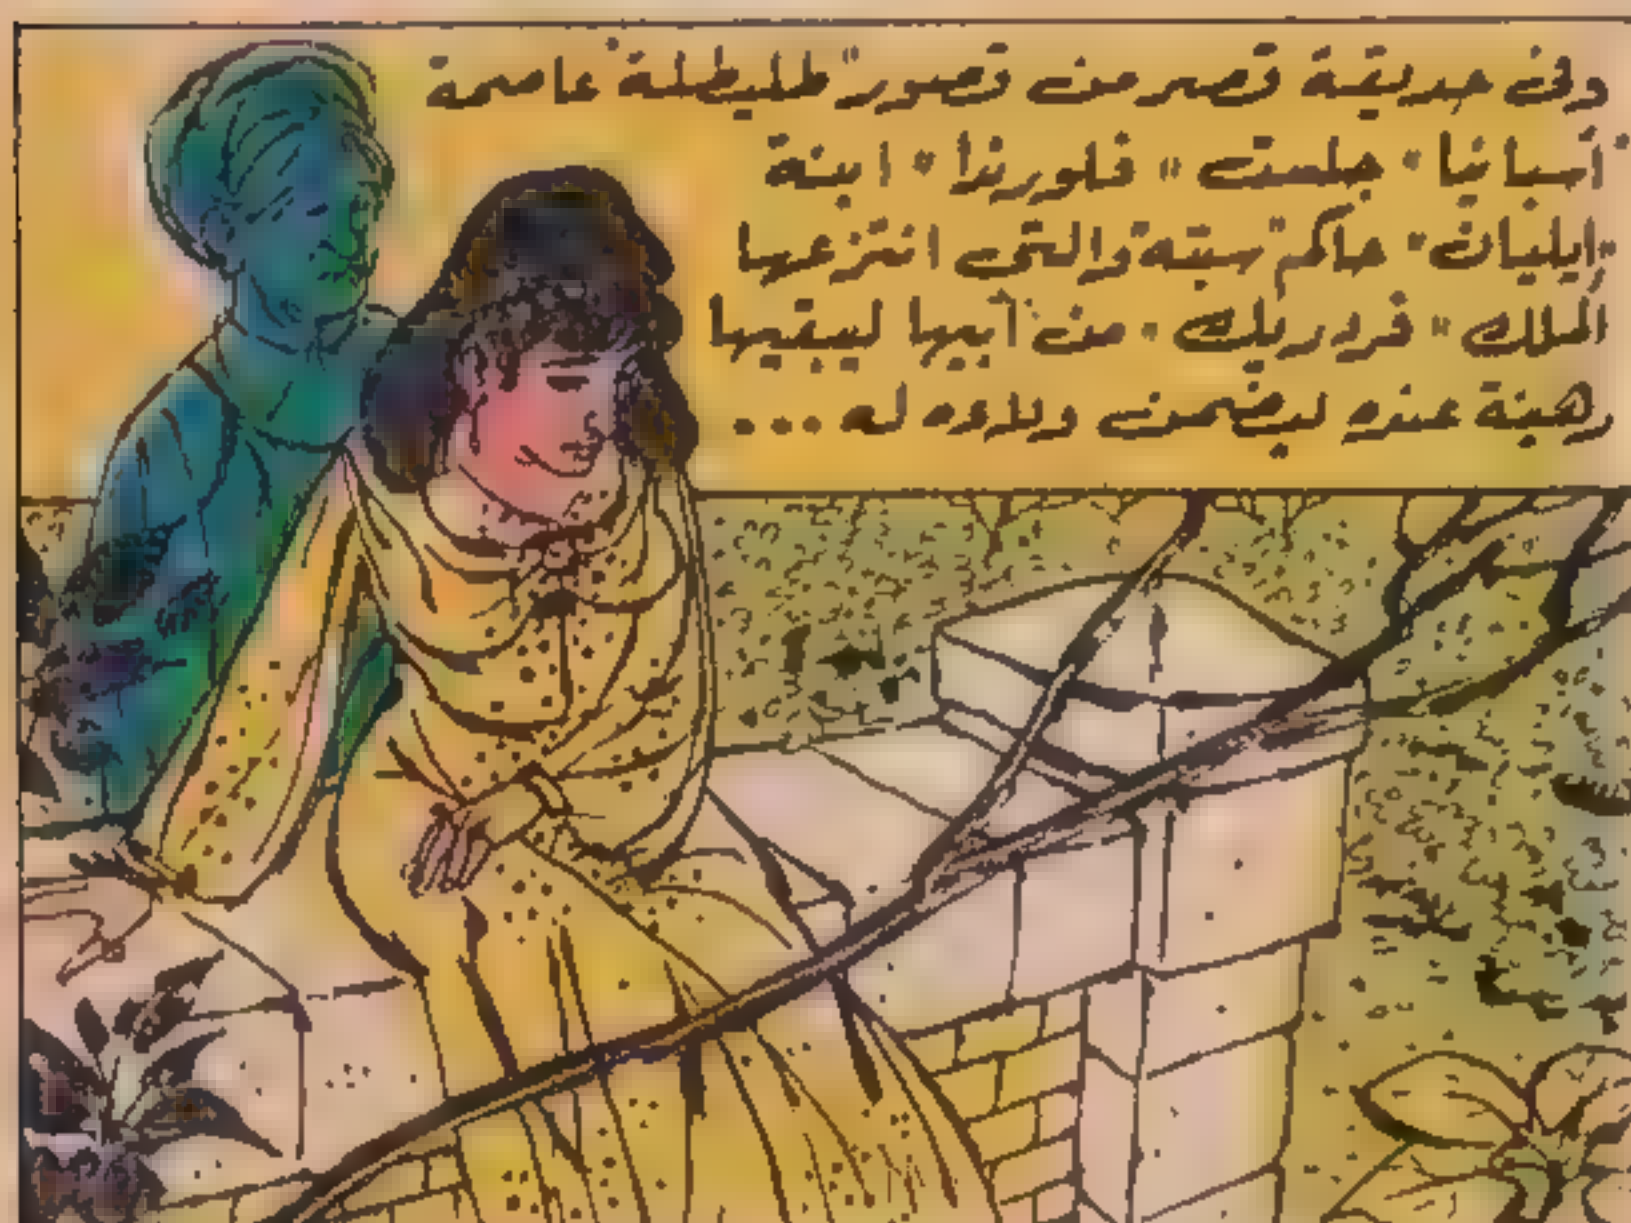 وفى حديقة قصر من قصور "طليطلة" عاصمة
"أسبانيا" جلست "فلورندا" ابنة
"إيليان" حاكم "سبته" والتى انتزعها
الملك "فردريك" من أبيها ليبقيها
رهينة عنده ليضمن ولاءه له ...